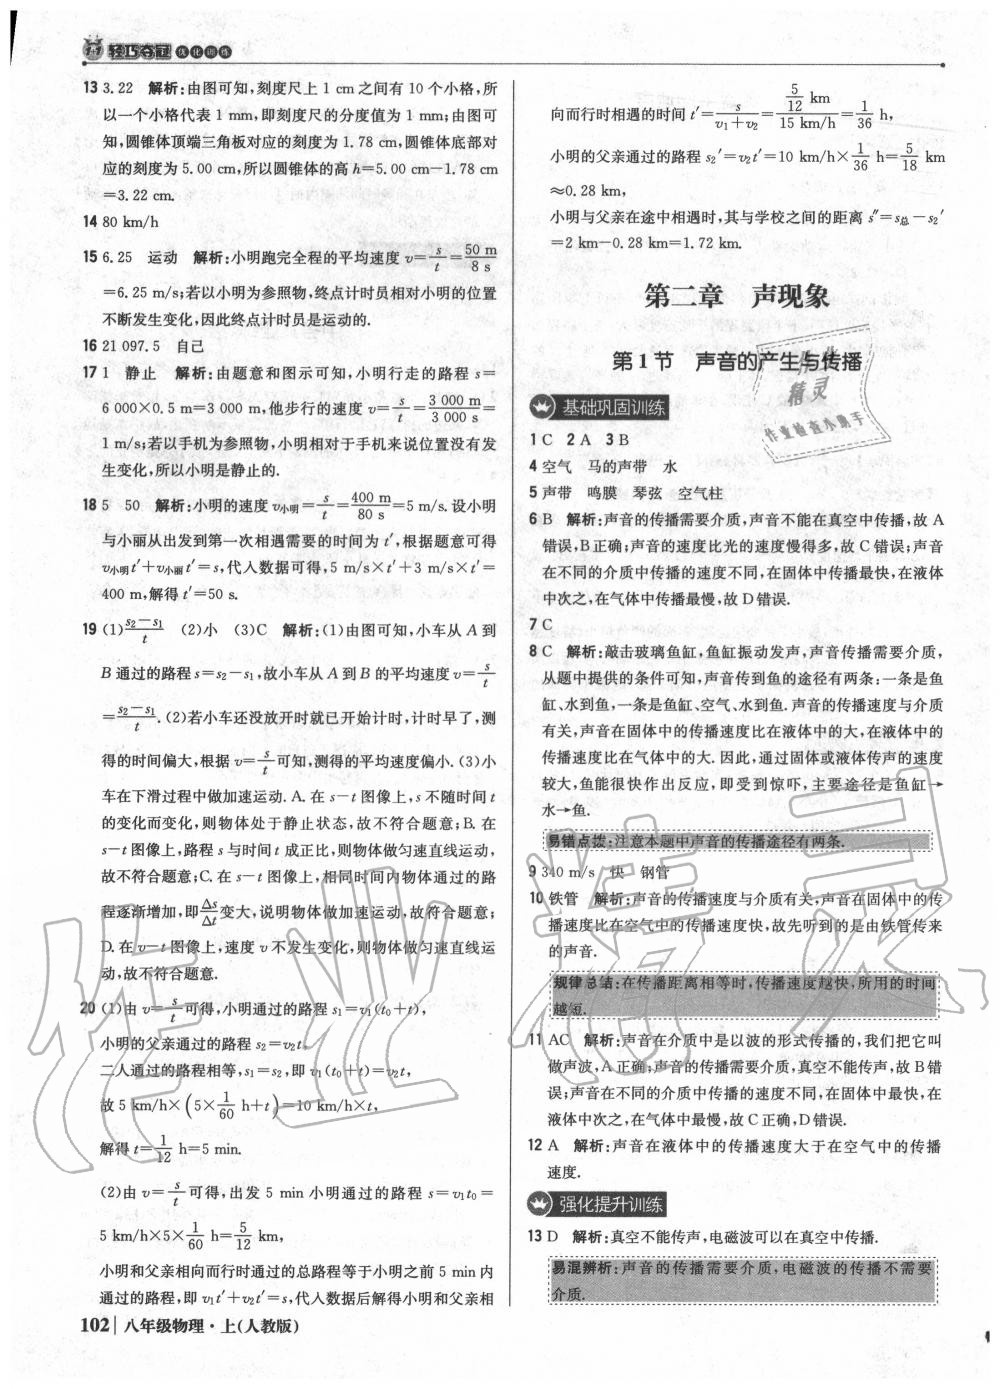 1+1 轻巧夺冠 优化训练
13 3.22 解析:由图可知,刻度尺上 1 cm之间有 10 个小格,所
以一个小格代表 1 mm,即刻度尺的分度值为 1 mm;由图可
知,圆锥体顶端三角板对应的刻度为 1.78 cm,圆锥体底部对
应的刻度为 5.00 cm,所以圆锥体的高 h=5.00 cm-1.78 cm
=3.22 cm.
14 80 km/h
15 6.25 运动 解析:小明跑完全程的平均速度 v=s/t=50 m/8 s
=6.25 m/s;若以小明为参照物,终点计时员相对小明的位置
不断发生变化,因此终点计时员是运动的.
16 21 097.5 自己
17 1 静止 解析:由题意和图示可知,小明行走的路程 s=
6 000×0.5 m=3 000 m,他步行的速度 v=s/t=3 000 m/3 000 s=
1 m/s;若以手机为参照物,小明相对于手机来说位置没有发
生变化,所以小明是静止的.
18 5 50 解析:小明的速度 v小明=s/t=400 m/80 s=5 m/s.设小明
与小丽从出发到第一次相遇需要的时间为 t′,根据题意可得
v小明t′+v小丽t′=s,代人数据可得,5 m/s×t′+3 m/s×t′=
400 m,解得 t′=50 s.
19 (1)s2-s1/t (2)小 (3)C 解析:(1)由图可知,小车从 A 到
B 通过的路程 s=s2-s1,故小车从 A 到 B 的平均速度 v=s/t
=s2-s1/t.(2)若小车还没放开时就已开始计时,计时早了,测
得的时间偏大,根据 v=s/t可知,测得的平均速度偏小.(3)小
车在下滑过程中做加速运动.A.在 s-t 图像上,s 不随时间 t
的变化而变化,则物体处于静止状态,故不符合题意;B.在
s-t 图像上,路程 s 与时间 t 成正比,则物体做匀速直线运动,
故不符合题意;C.在 s-t 图像上,相同时间内物体通过的路
程逐渐增加,即Δs/Δt变大,说明物体做加速运动,故符合题意;
D.在 v-t 图像上,速度 v 不发生变化,则物体做匀速直线运
动,故不符合题意.
20 (1)由 v=s/t可得,小明通过的路程 s1=v1(t0+t),
小明的父亲通过的路程 s2=v2t.
二人通过的路程相等,s1=s2,即 v1(t0+t)=v2t,
故 5 km/h×(5×1/60 h+t)=10 km/h×t,
解得 t=1/12 h=5 min.
(2)由 v=s/t可得,出发 5 min 小明通过的路程 s=v1t0=
5 km/h×5×1/60 h=5/12 km,
小明和父亲相向而行时通过的总路程等于小明之前 5 min 内
通过的路程,即 v1t′+v2t′=s,代人数据后解得小明和父亲相
102 八年级物理·上(人教版)
向而行时相遇的时间 t′=s/(v1+v2)=(5/12 km)/(15 km/h)=1/36 h,
小明的父亲通过的路程 s2′=v2t′=10 km/h×1/36 h=5/18 km
≈0.28 km,
小明与父亲在途中相遇时,其与学校之间的距离 s″=s总-s2′
=2 km-0.28 km=1.72 km.
第二章 声现象
第1节 声音的产生与传播
基础巩固训练
1 C 2 A 3 B
4 空气 马的声带 水
5 声带 鸣膜 琴弦 空气柱
6 B 解析:声音的传播需要介质,声音不能在真空中传播,故 A
错误,B 正确;声音的速度比光的速度慢得多,故 C 错误;声音
在不同的介质中传播的速度不同,在固体中传播最快,在液体
中次之,在气体中传播最慢,故 D 错误.
7 C
8 C 解析:敲击玻璃鱼缸,鱼缸振动发声,声音传播需要介质,
从题中提供的条件可知,声音传到鱼的途径有两条:一条是鱼
缸、水到鱼,一条是鱼缸、空气、水到鱼.声音的传播速度与介质
有关,声音在固体中的传播速度比在液体中的大,在液体中的
传播速度比在气体中的大.因此,通过固体或液体传声的速度
较大,鱼能很快作出反应,即受到惊吓,主要途径是鱼缸→
水→鱼.
易错点拨:注意本题中声音的传播途径有两条.
9 340 m/s 快 钢管
10 铁管 解析:声音的传播速度与介质有关,声音在固体中的传
播速度比在空气中的传播速度快,故先听到的是由铁管传来
的声音.
规律总结:在传播距离相等时,传播速度越快,所用的时间
越短.
11 AC 解析:声音在介质中是以波的形式传播的,我们把它叫
做声波,A 正确;声音的传播需要介质,真空不能传声,故 B 错
误;声音在不同的介质中传播的速度不同,在固体中最快,在
液体中次之,在气体中最慢,故 C 正确,D 错误.
12 A 解析:声音在液体中的传播速度大于在空气中的传播
速度.
强化提升训练
13 D 解析:真空不能传声,电磁波可以在真空中传播.
易混辨析:声音的传播需要介质,电磁波的传播不需要
介质.
作业精灵
作业检查小助手
作业精灵